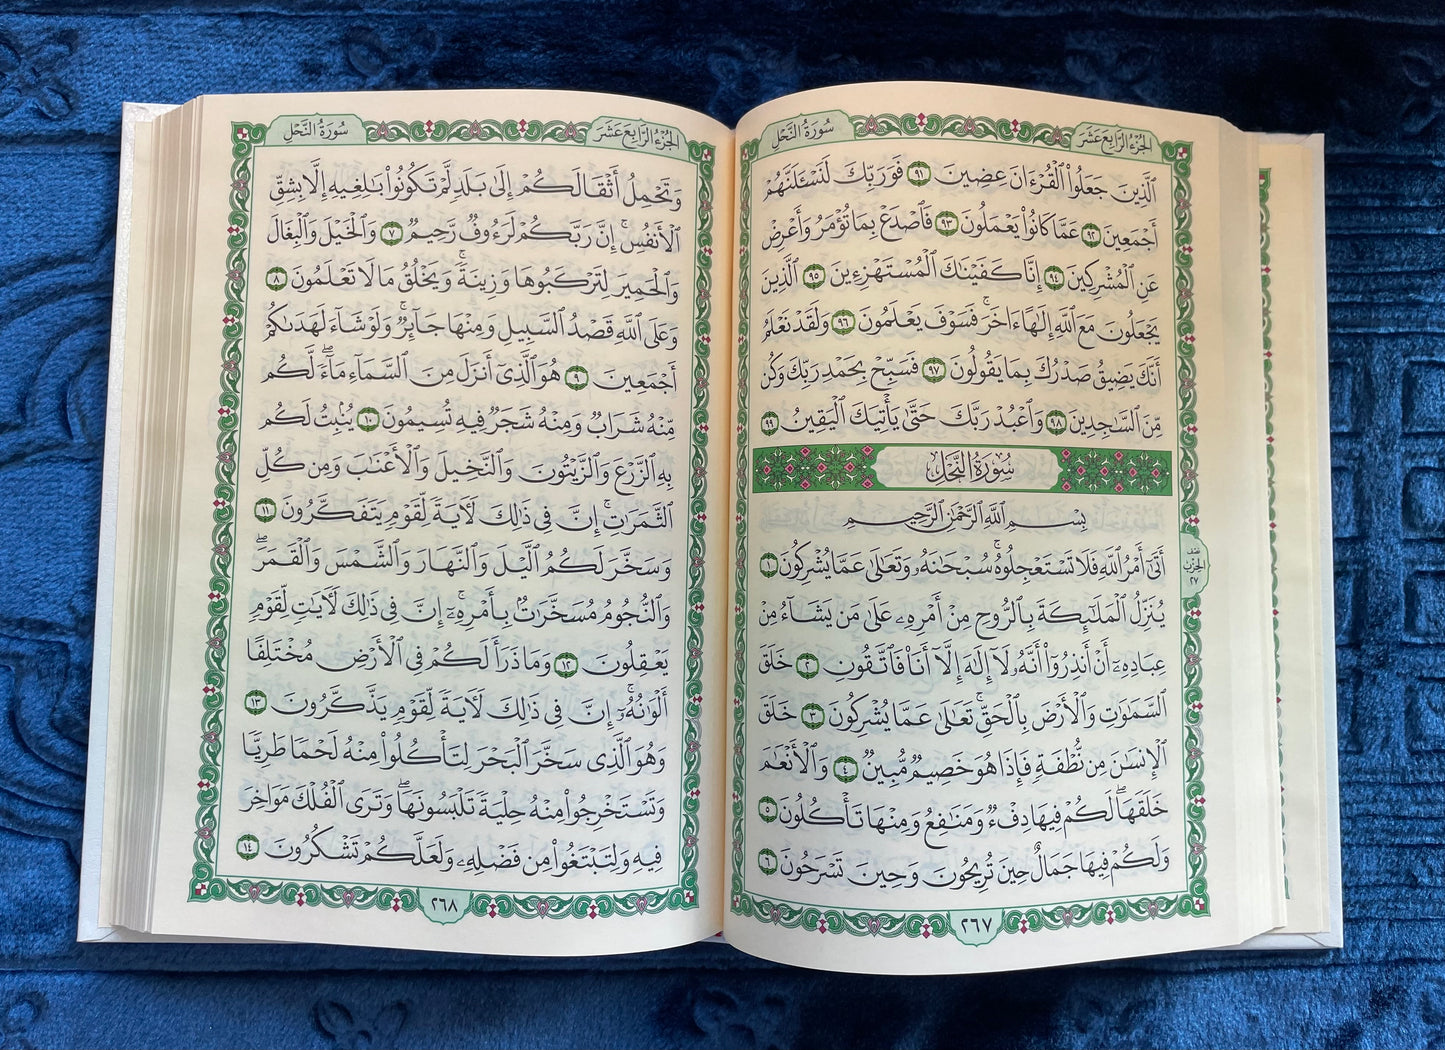 سُورَةُ النَّحْلِ
الجُزْءُ الرَّابِعَ عَشَرَ
الَّذِينَ جَعَلُوا۟ ٱلْقُرْءَانَ عِضِينَ ٩١ فَوَرَبِّكَ لَنَسْـَٔلَنَّهُمْ
أَجْمَعِينَ ٩٢ عَمَّا كَانُوا۟ يَعْمَلُونَ ٩٣ فَٱصْدَعْ بِمَا تُؤْمَرُ وَأَعْرِضْ
عَنِ ٱلْمُشْرِكِينَ ٩٤ إِنَّا كَفَيْنَـٰكَ ٱلْمُسْتَهْزِءِينَ ٩٥ ٱلَّذِينَ
يَجْعَلُونَ مَعَ ٱللَّهِ إِلَـٰهًا ءَاخَرَ ۚ فَسَوْفَ يَعْلَمُونَ ٩٦ وَلَقَدْ نَعْلَمُ
أَنَّكَ يَضِيقُ صَدْرُكَ بِمَا يَقُولُونَ ٩٧ فَسَبِّحْ بِحَمْدِ رَبِّكَ وَكُن
مِّنَ ٱلسَّـٰجِدِينَ ٩٨ وَٱعْبُدْ رَبَّكَ حَتَّىٰ يَأْتِيَكَ ٱلْيَقِينُ ٩٩
سُورَةُ النَّحْلِ
بِسْمِ ٱللَّهِ ٱلرَّحْمَـٰنِ ٱلرَّحِيمِ
أَتَىٰٓ أَمْرُ ٱللَّهِ فَلَا تَسْتَعْجِلُوهُ ۚ سُبْحَـٰنَهُۥ وَتَعَـٰلَىٰ عَمَّا يُشْرِكُونَ ١
يُنَزِّلُ ٱلْمَلَـٰٓئِكَةَ بِٱلرُّوحِ مِنْ أَمْرِهِۦ عَلَىٰ مَن يَشَآءُ مِنْ
عِبَادِهِۦٓ أَنْ أَنذِرُوٓا۟ أَنَّهُۥ لَآ إِلَـٰهَ إِلَّآ أَنَا۠ فَٱتَّقُونِ ٢ خَلَقَ
ٱلسَّمَـٰوَٰتِ وَٱلْأَرْضَ بِٱلْحَقِّ ۚ تَعَـٰلَىٰ عَمَّا يُشْرِكُونَ ٣ خَلَقَ
ٱلْإِنسَـٰنَ مِن نُّطْفَةٍ فَإِذَا هُوَ خَصِيمٌ مُّبِينٌ ٤ وَٱلْأَنْعَـٰمَ
خَلَقَهَا ۗ لَكُمْ فِيهَا دِفْءٌ وَمَنَـٰفِعُ وَمِنْهَا تَأْكُلُونَ ٥
وَلَكُمْ فِيهَا جَمَالٌ حِينَ تُرِيحُونَ وَحِينَ تَسْرَحُونَ ٦
نِصْفُ
الحِزْب
٢٧
٢٦٧
سُورَةُ النَّحْلِ
الجُزْءُ الرَّابِعَ عَشَرَ
وَتَحْمِلُ أَثْقَالَكُمْ إِلَىٰ بَلَدٍ لَّمْ تَكُونُوا۟ بَـٰلِغِيهِ إِلَّا بِشِقِّ
ٱلْأَنفُسِ ۚ إِنَّ رَبَّكُمْ لَرَءُوفٌ رَّحِيمٌ ٧ وَٱلْخَيْلَ وَٱلْبِغَالَ
وَٱلْحَمِيرَ لِتَرْكَبُوهَا وَزِينَةً ۚ وَيَخْلُقُ مَا لَا تَعْلَمُونَ ٨
وَعَلَى ٱللَّهِ قَصْدُ ٱلسَّبِيلِ وَمِنْهَا جَآئِرٌ ۚ وَلَوْ شَآءَ لَهَدَىٰكُمْ
أَجْمَعِينَ ٩ هُوَ ٱلَّذِىٓ أَنزَلَ مِنَ ٱلسَّمَآءِ مَآءً ۖ لَّكُم
مِّنْهُ شَرَابٌ وَمِنْهُ شَجَرٌ فِيهِ تُسِيمُونَ ١٠ يُنۢبِتُ لَكُم
بِهِ ٱلزَّرْعَ وَٱلزَّيْتُونَ وَٱلنَّخِيلَ وَٱلْأَعْنَـٰبَ وَمِن كُلِّ
ٱلثَّمَرَٰتِ ۗ إِنَّ فِى ذَٰلِكَ لَـَٔايَةً لِّقَوْمٍ يَتَفَكَّرُونَ ١١
وَسَخَّرَ لَكُمُ ٱلَّيْلَ وَٱلنَّهَارَ وَٱلشَّمْسَ وَٱلْقَمَرَ ۖ
وَٱلنُّجُومُ مُسَخَّرَٰتٌۢ بِأَمْرِهِۦٓ ۗ إِنَّ فِى ذَٰلِكَ لَـَٔايَـٰتٍ لِّقَوْمٍ
يَعْقِلُونَ ١٢ وَمَا ذَرَأَ لَكُمْ فِى ٱلْأَرْضِ مُخْتَلِفًا
أَلْوَٰنُهُۥٓ ۗ إِنَّ فِى ذَٰلِكَ لَـَٔايَةً لِّقَوْمٍ يَذَّكَّرُونَ ١٣
وَهُوَ ٱلَّذِى سَخَّرَ ٱلْبَحْرَ لِتَأْكُلُوا۟ مِنْهُ لَحْمًا طَرِيًّا
وَتَسْتَخْرِجُوا۟ مِنْهُ حِلْيَةً تَلْبَسُونَهَا ۖ وَتَرَى ٱلْفُلْكَ مَوَاخِرَ
فِيهِ وَلِتَبْتَغُوا۟ مِن فَضْلِهِۦ وَلَعَلَّكُمْ تَشْكُرُونَ ١٤
٢٦٨